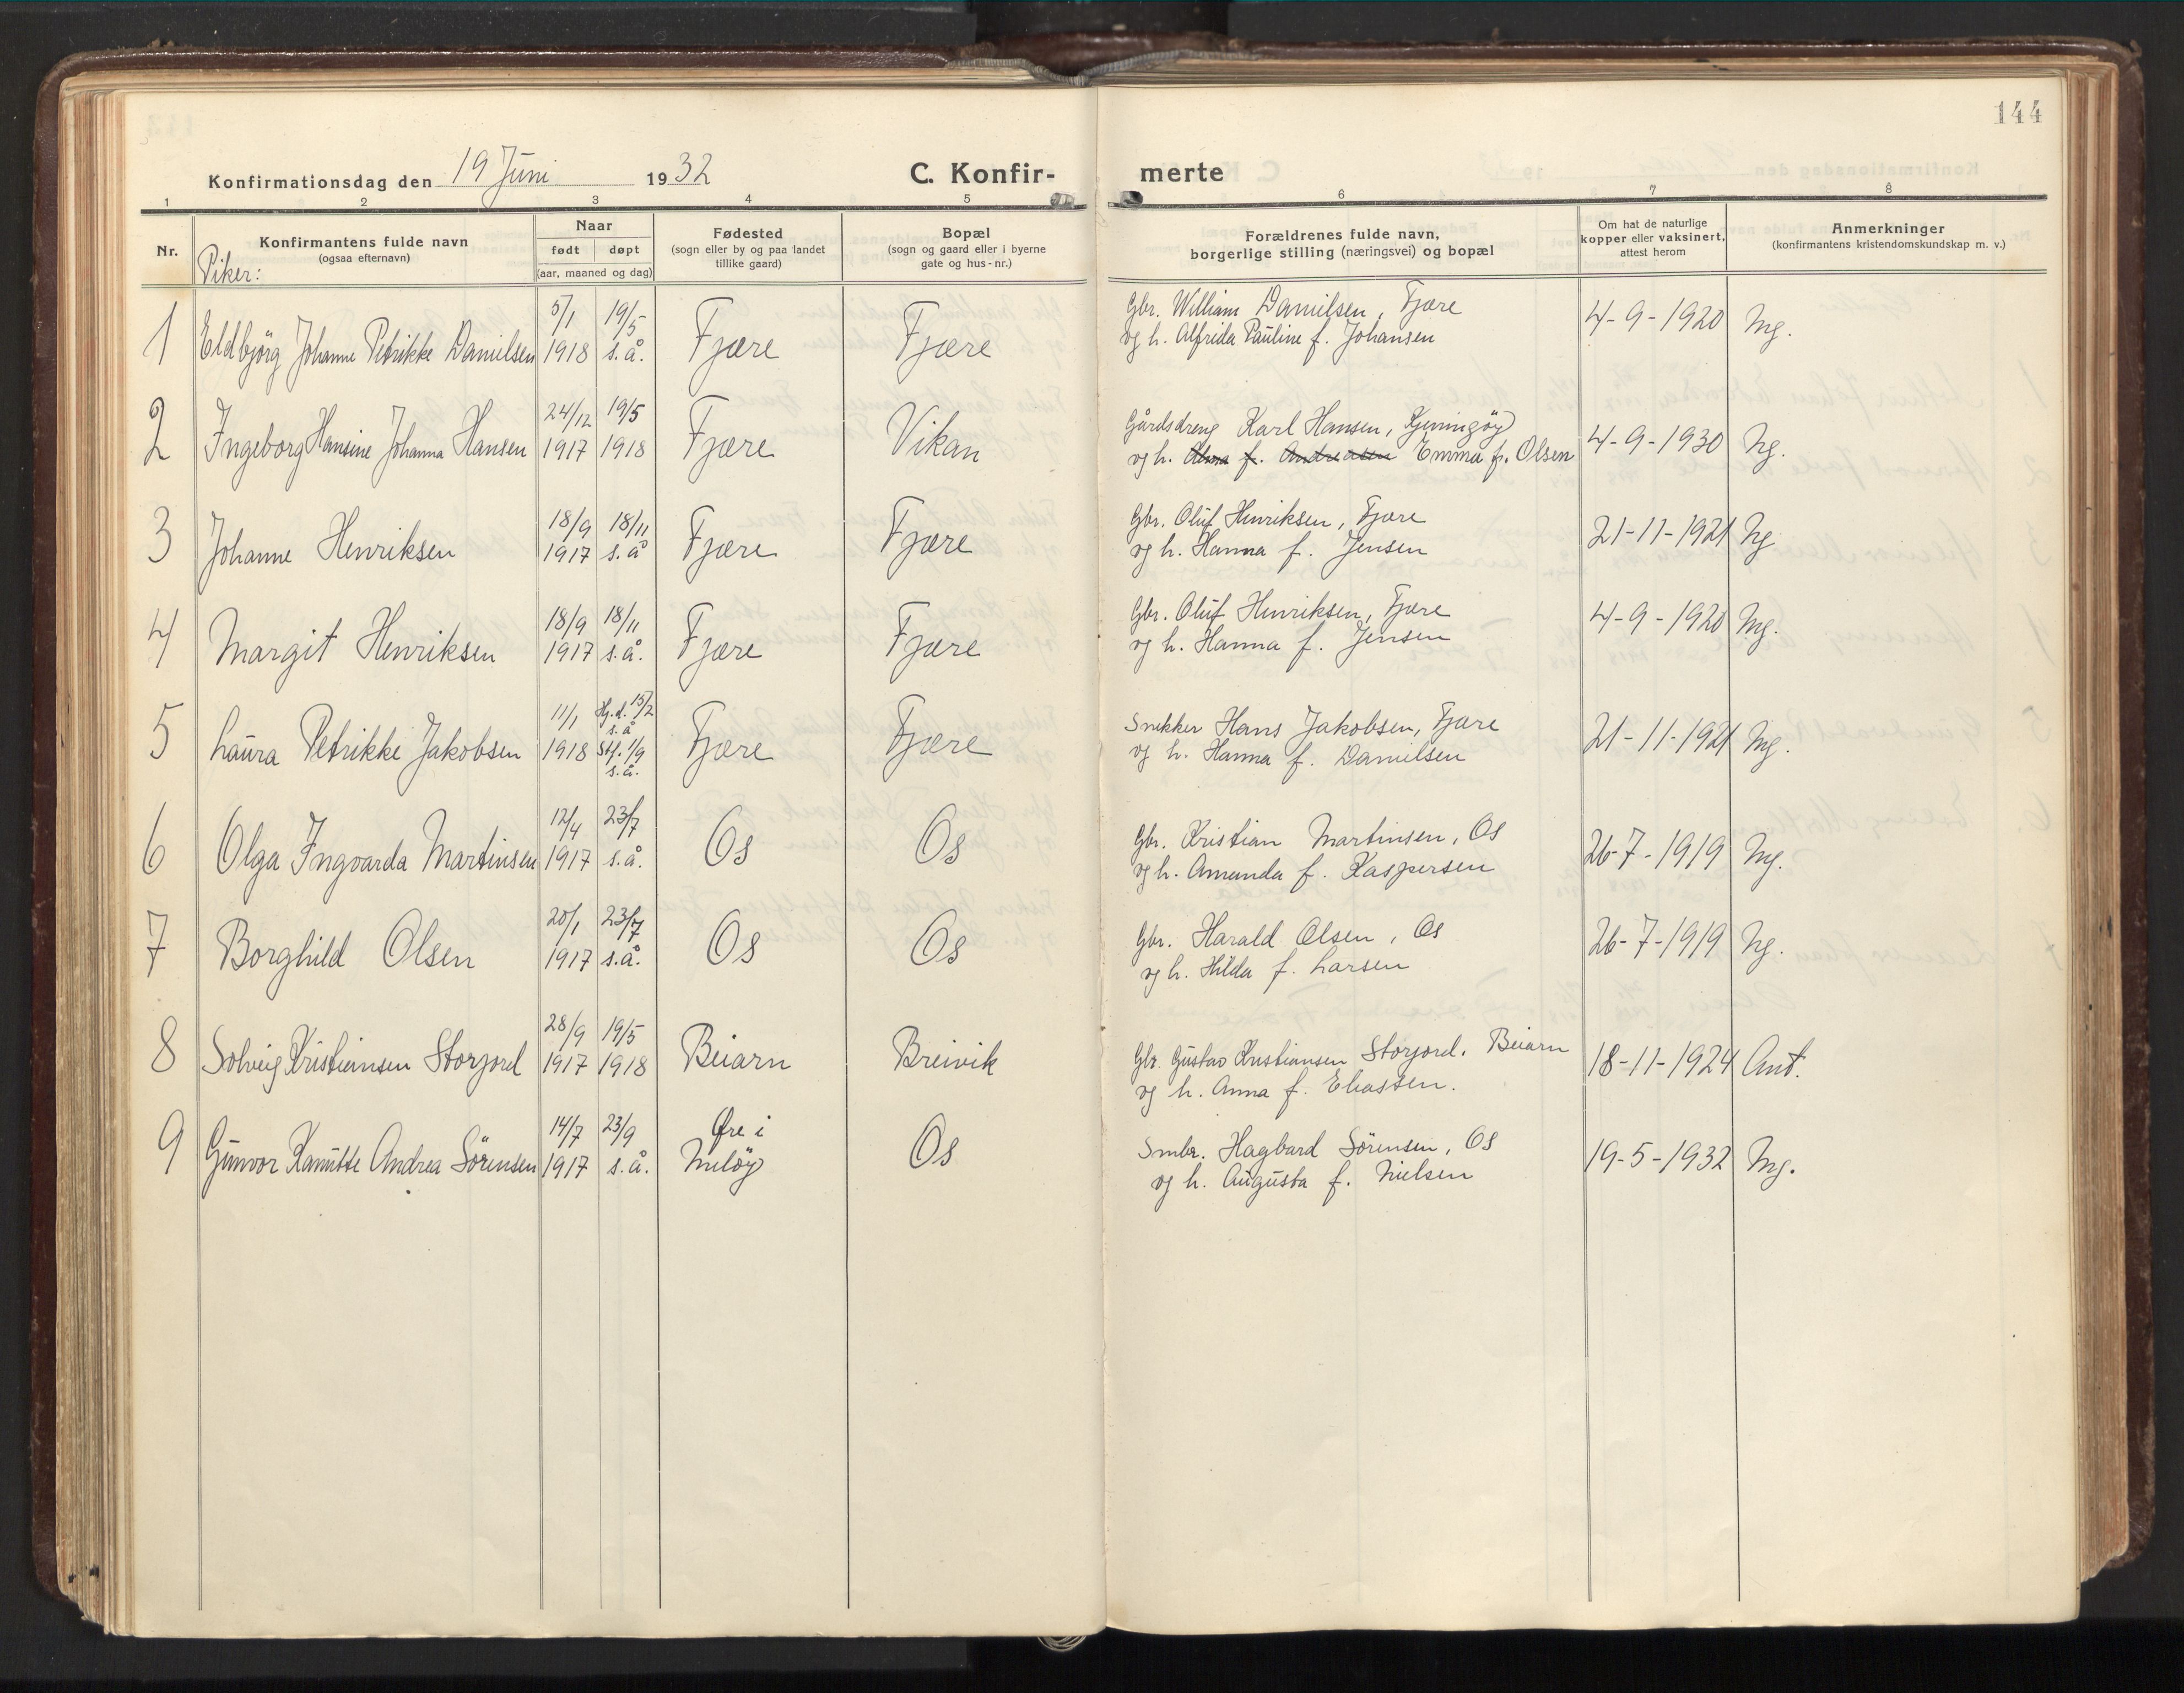 144
Konfirmationsdag den 19 Juni 1932 C. Konfir- merte
1 2 3 4 5 6 7 8
Nr. Konfirmantens fulde navn (ogsaa efternavn) Naar født døpt (aar, maaned og dag) Fødested (sogn eller by og paa landet tillike gaard) Bopæl (sogn og gaard eller i byerne gate og hus-nr.) Forældrenes fulde navn, borgerlige stilling (næringsvei) og bopæl Om hat de naturlige kopper eller vaksinert, attest herom Anmerkninger (konfirmantens kristendomskundskap m. v.)
Piker:
5/1 19/5 Gbr. William Danielsen, Fjære
1 Eldbjörg Johanne Petrikke Danielsen 1918 s.å. Fjære Fjære og h. Alfrida Pauline f. Johansen 4-9-1920 Mg.
24/12 19/5 Gårdsdreng Karl Hansen, Kjerringöy
2 Ingeborg Hansine Johanna Hansen 1917 1918 Fjære Vikan og h. Alma f. Andreasen Emma f. Olsen 4-9-1930 Ng.
18/9 18/11 Gbr. Oluf Henriksen, Fjære
3 Johanne Henriksen 1917 s.å Fjære Fjære og h. Hanna f. Jensen 21-11-1921 Ng
18/9 18/11 Gbr. Oluf Henriksen, Fjære
4 Margit Henriksen 1917 s.å. Fjære Fjære og h. Hanna f. Jensen 4-9-1920 Mg.
11/1 Hj.d. 15/2 s.å Snekker Hans Jakobsen, Fjære
5 Laura Petrikke Jakobsen 1918 Stf. 1/9 s.å. Fjære Fjære og h. Hanna f. Danielsen 21-11-1921 Mg.
12/4 23/7 Gbr. Kristian Martinsen, Os
6 Olga Ingvarda Martinsen 1917 s.å. Os Os og h. Amanda f. Kaspersen 26-7-1919 Mg.
20/1 23/7 Gbr. Harald Olsen, Os
7 Borghild Olsen 1917 s.å. Os Os og h. Hilda f. Larsen 26-7-1919 Ng.
28/9 19/5 Gbr. Gustav Kristiansen Storjord. Beiarn
8 Solveig Kristiansen Storjord 1917 1918 Beiarn Breivik og h. Anna f. Eliassen. 18-11-1924 Ant.
14/7 23/9 Øre i Smbr. Hagbard Sörensen, Os
9 Gunvor Kanutte Andrea Sörensen 1917 s.å. Melöy Os og h. Augusta f. Nielsen 19-5-1932 Mg.